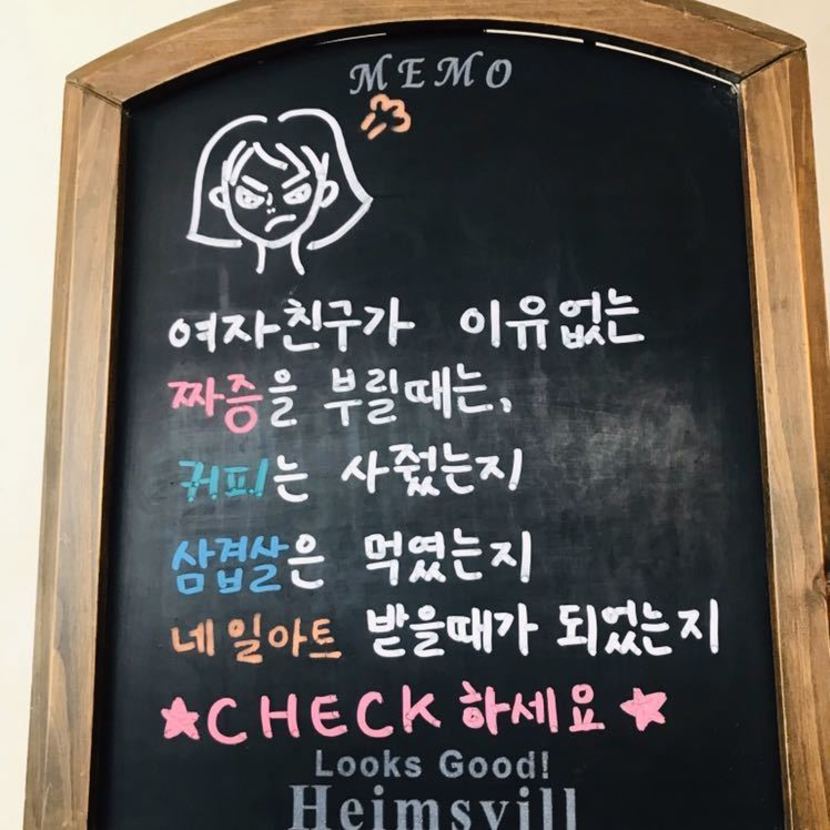 MEMO
여자친구가 이유없는
짜증을 부릴때는,
커피는 사줬는지
삼겹살은 먹였는지
네일아트 받을때가 되었는지
★CHECK 하세요★
Looks Good!
Heimsvill